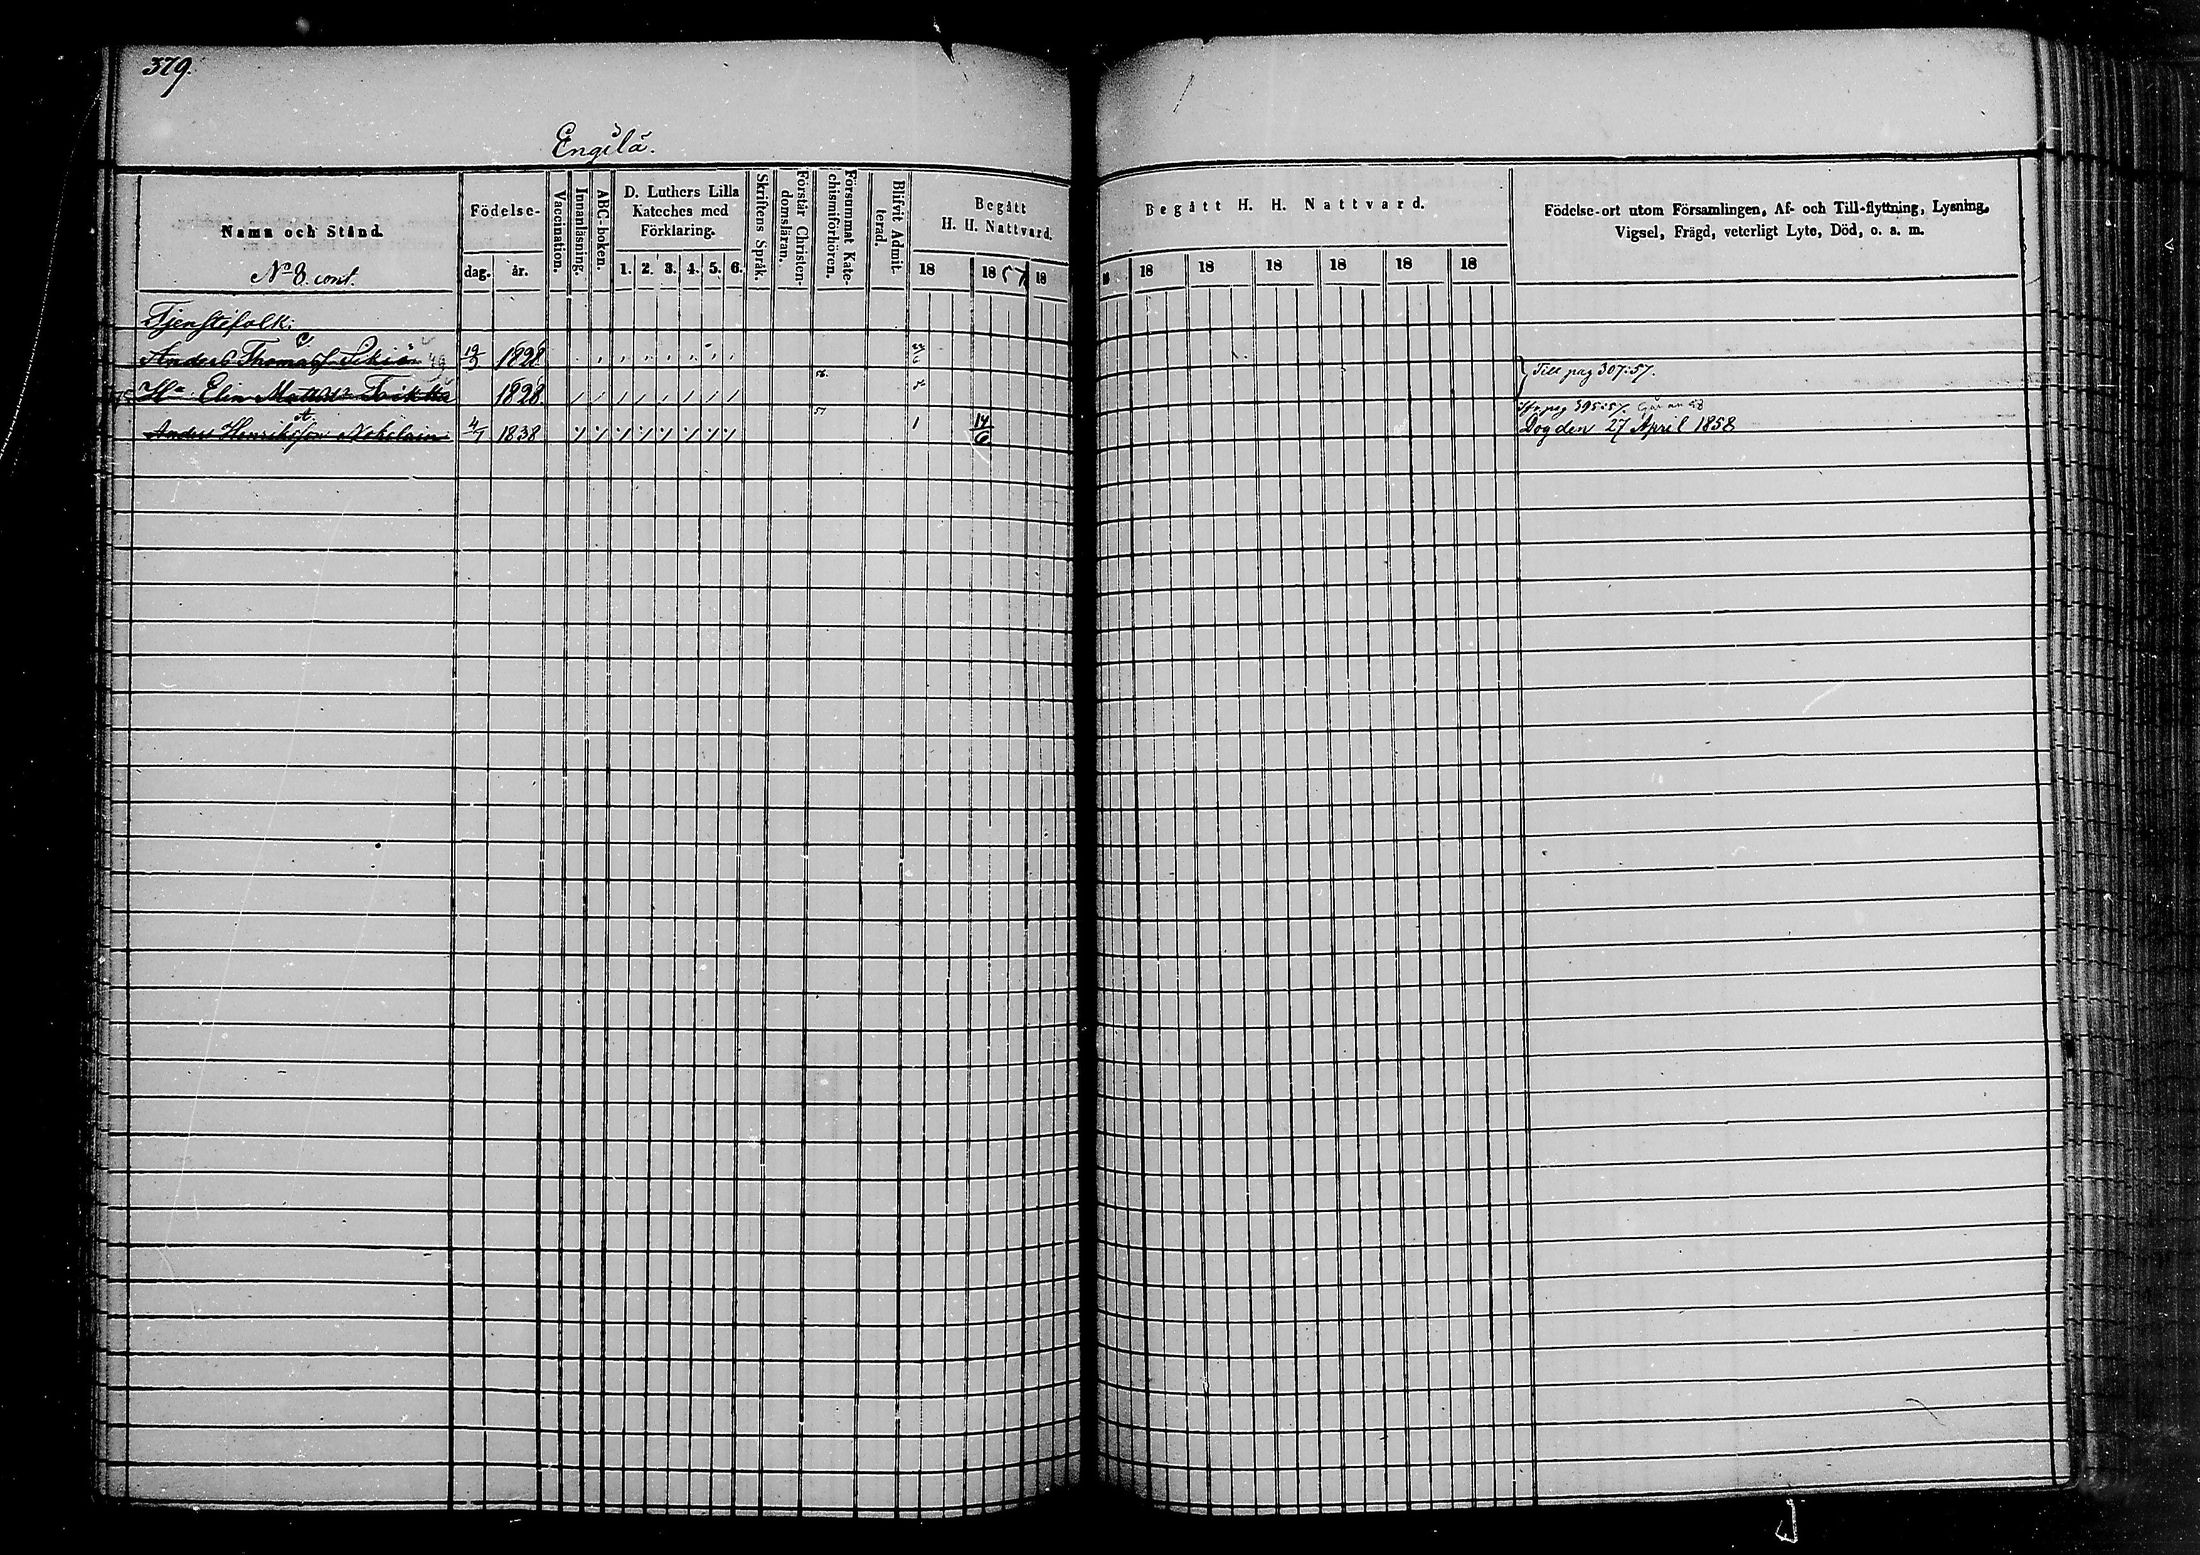 379.
Engilä.
Namn och Stånd.
No 8. cont.
Födelse-
dag. år.
Vaccination.
Innanläsning.
ABC-boken.
D. Luthers Lilla
Kateches med
Förklaring.
1. 2. 3. 4. 5. 6.
Skriftens Språk.
Förstår Christen-
domsläran.
Försummat Kate-
chismiförhören.
Blifvit Admit-
terad.
Begått
H. H. Nattvard.
18 1857 18
Begått H. H. Nattvard.
18 18 18 18 18 18 18
Födelse-ort utom Församlingen, Af- och Till-flyttning, Lysning,
Vigsel, Frägd, veterligt Lyte, Död, o. a. m.
Tjenstefolk:
Anders Thomass. 1828 Till pag 307:57.
Hu Elin Mattsdr 1828 56.
57 pag 395:57.
Anders Henriksson 4/1 1838 1 14/6 Dog den 27 April 1858